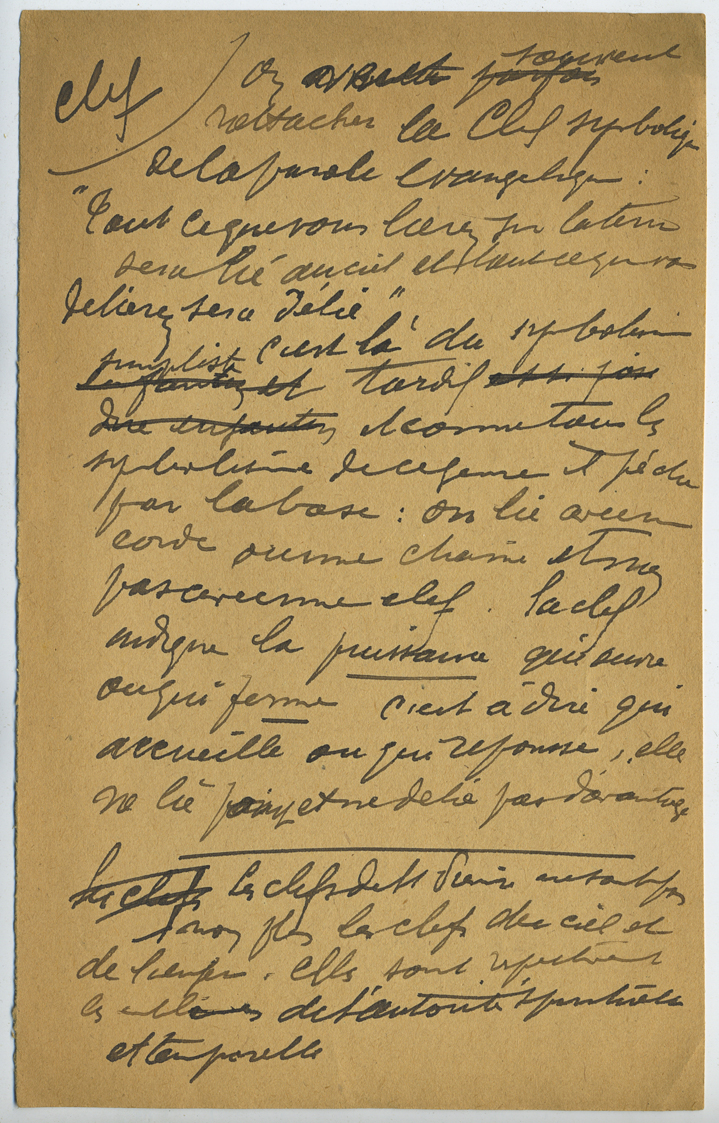 clef
On souvent
rattacher la Clef symboliq
de la parole évangelique :
"Tout ce que vous lierez sur la terre
sera lié au ciel et tout ce que vous
delierez sera délié"
c'est là du symbolisme
simpliste et tardif
et comme tous les
symbolisme de ce genre il pêche
par la base : on lie avec une
corde ou une chaine et non
pas avec une clef. la clef
indique la puissance qui ouvre
ou qui ferme c'est à dire qui
accueille ou qui repousse, elle
ne lie point et ne delie pas davantage
les clefs de St Pierre ne sont pas
non plus les clefs du ciel et
de l'enfer. Elles sont
les emblèmes de l'autorité spirituelle
et temporelle